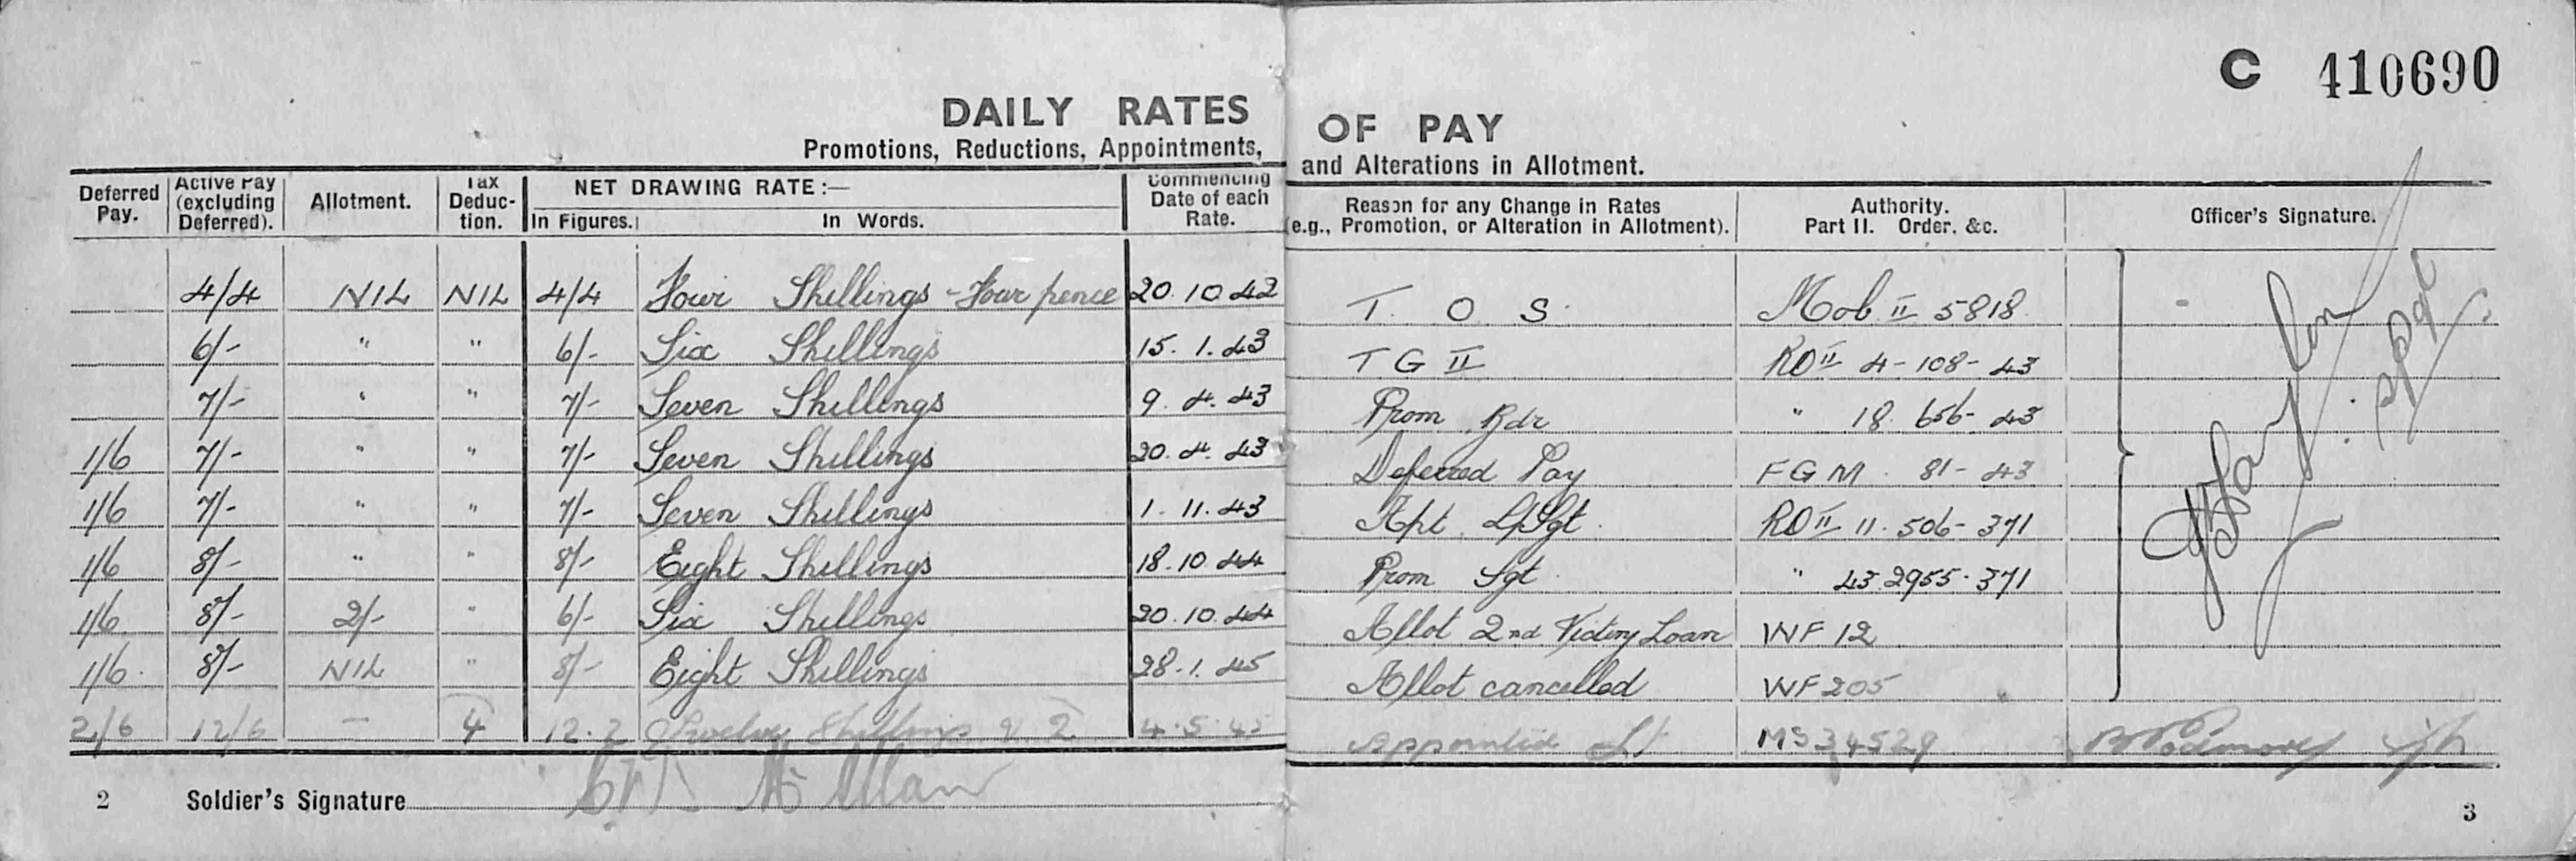 C 410690
DAILY RATES OF PAY
Promotions, Reductions, Appointments, and Alterations in Allotment.
Deferred Pay. Active Pay (excluding Deferred). Allotment. Tax Deduc- tion. NET DRAWING RATE:— In Figures. In Words. Commencing Date of each Rate. Reason for any Change in Rates (e.g., Promotion, or Alteration in Allotment). Authority. Part II. Order, &c. Officer's Signature.
4/4 NIL NIL 4/4 Four Shillings - Four pence 20.10.42 T. O S. Mob II 5818
6/- " " 6/- Six Shillings 15.1.43 T G II RO II 4-108-43
7/- " " 7/- Seven Shillings 9.4.43 Prom Bdr " 18.656-43
1/6 7/- " " 7/- Seven Shillings 20.4.43 Deferred Pay FGM 81-43
1/6 7/- " " 7/- Seven Shillings 1.11.43 Apt L/Sgt. RO II 11.506-371
1/6 8/- " " 8/- Eight Shillings 18.10.44 Prom Sgt " 43.2955.371
1/6 8/- 2/- " 6/- Six Shillings 20.10.44 Allot 2nd Victory Loan WF 12
1/6 8/- NIL " 8/- Eight Shillings 28.1.45 Allot cancelled WF 205
2/6 12/6 — 4 12.2 Twelve Shillings & 2 4.5.45 Appointed Lt MS 34529
2 Soldier's Signature
3